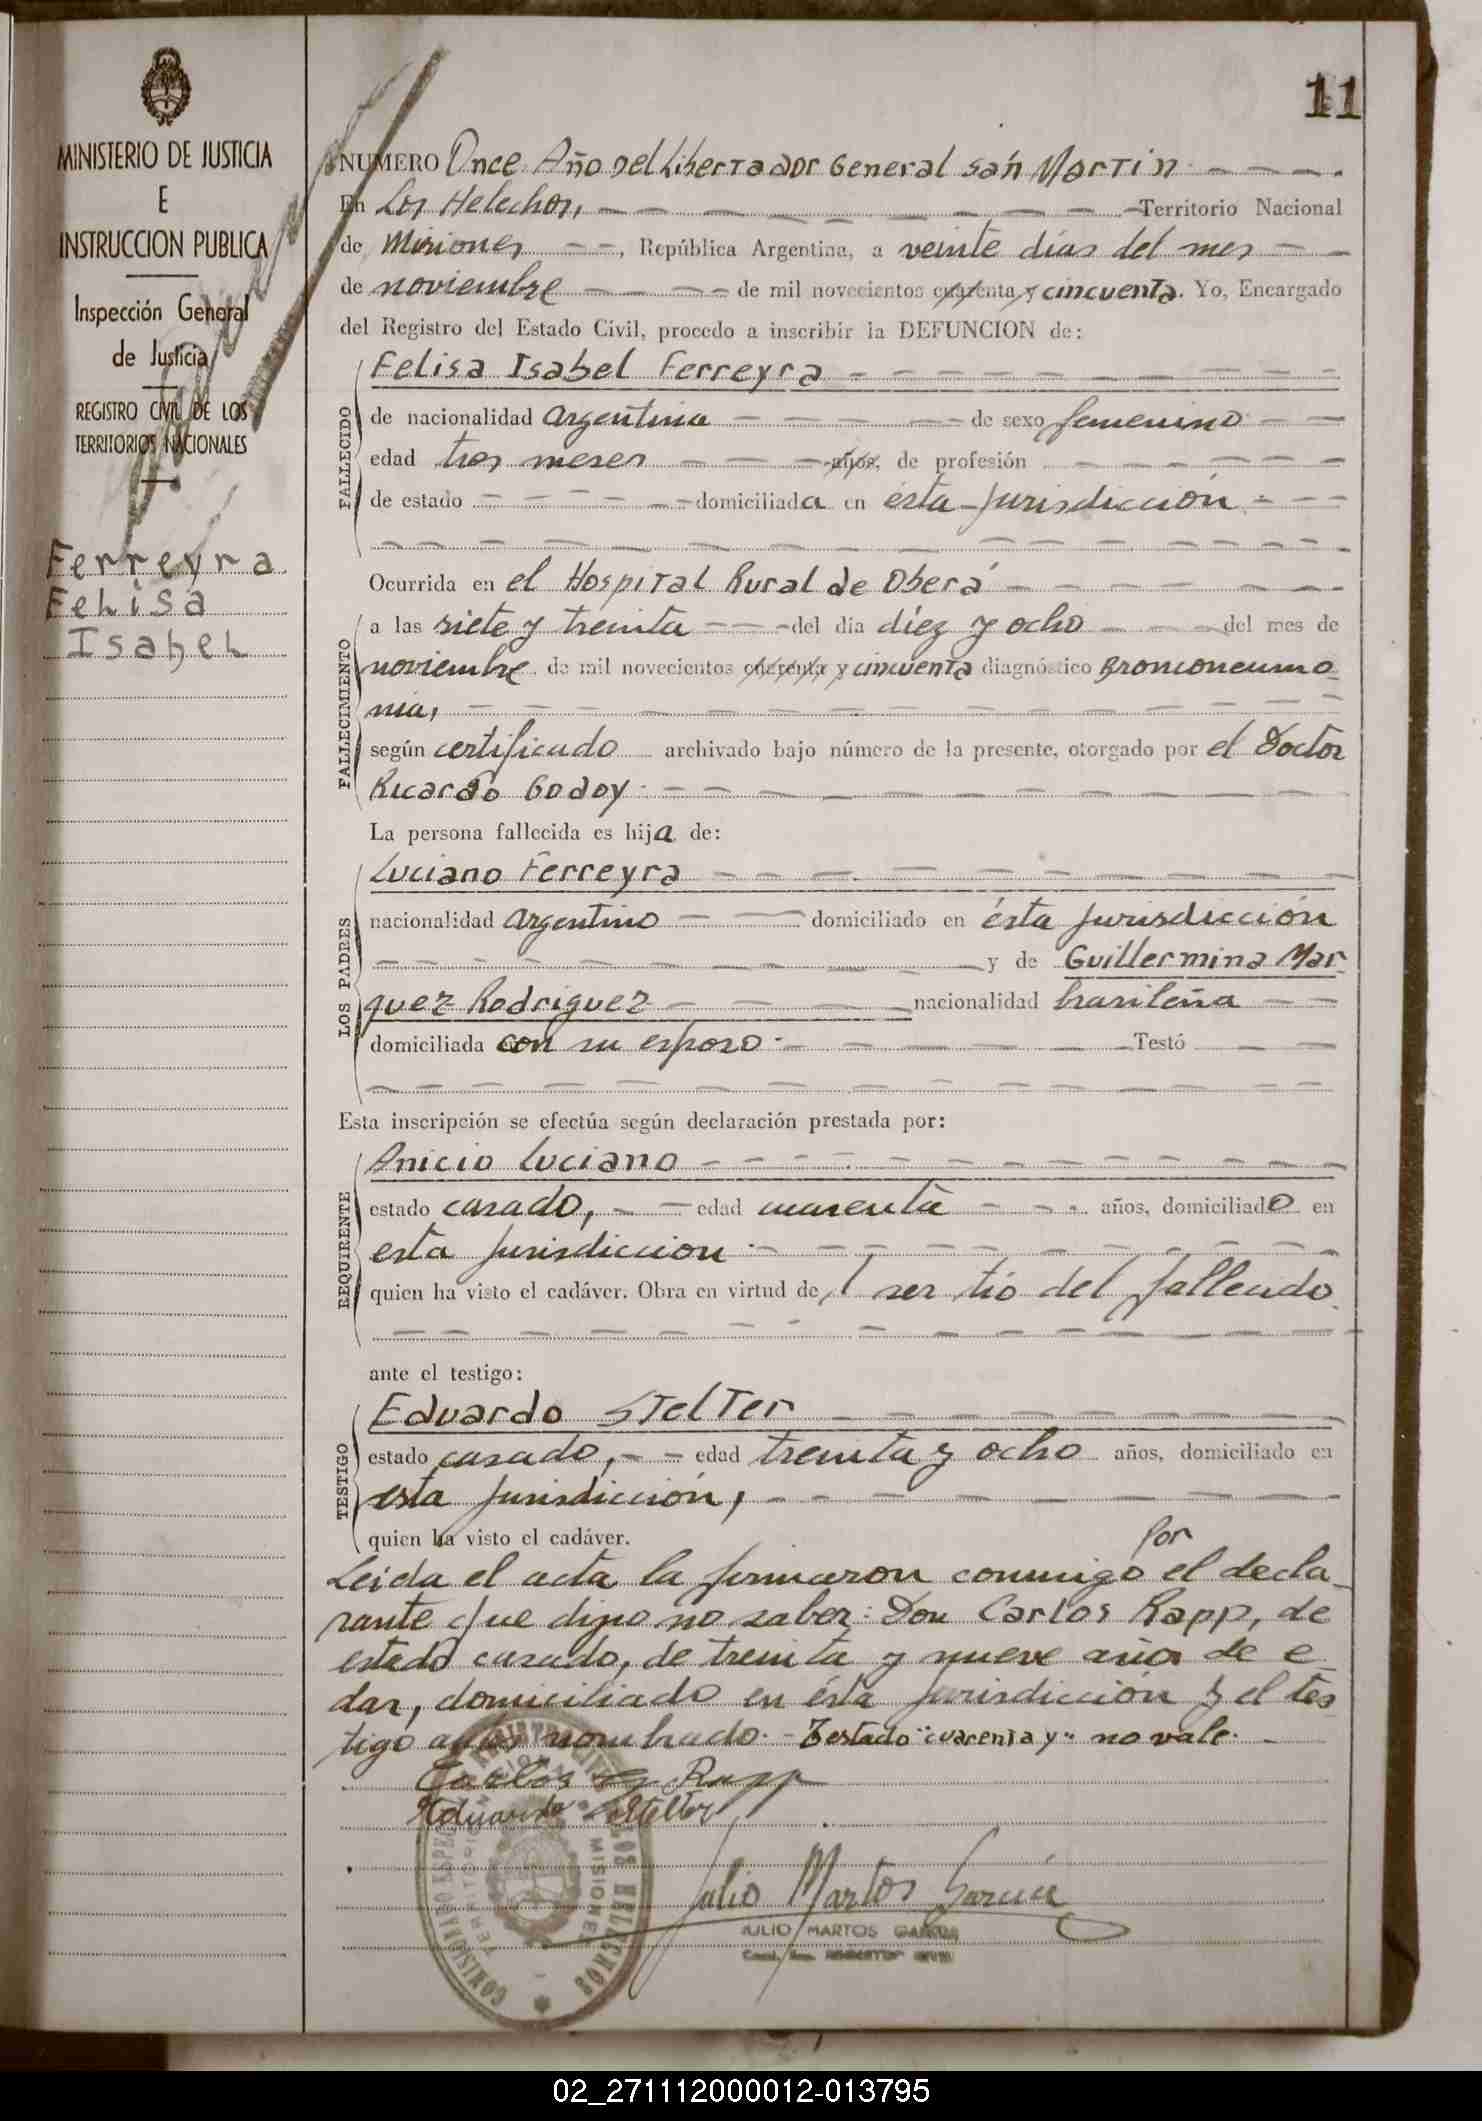 11
MINISTERIO DE JUSTICIA
E
INSTRUCCION PUBLICA
Inspección General
de Justicia
REGISTRO CIVIL DE LOS
TERRITORIOS NACIONALES
Ferreyra
Felisa
Isabel
NUMERO Once Año del Libertador General San Martin
En Los Helechos, Territorio Nacional
de Misiones, República Argentina, a veinte días del mes
de noviembre de mil novecientos cuarenta y cincuenta. Yo, Encargado
del Registro del Estado Civil, procedo a inscribir la DEFUNCION de:
FALLECIDO
Felisa Isabel Ferreyra
de nacionalidad argentina de sexo femenino
edad tres meses años, de profesión
de estado domiciliada en ésta jurisdicción
Ocurrida en el Hospital Rural de Oberá
FALLECIMIENTO
a las siete y treinta del día diez y ocho del mes de
noviembre de mil novecientos cuarenta y cincuenta diagnóstico Bronconeumo
nia,
según certificado archivado bajo número de la presente, otorgado por el Doctor
Ricardo Godoy
La persona fallecida es hija de:
LOS PADRES
Luciano Ferreyra
nacionalidad argentino domiciliado en ésta jurisdicción
y de Guillermina Mar
quez Rodriguez nacionalidad brasileña
domiciliada con su esposo Testó
Esta inscripción se efectúa según declaración prestada por:
REQUIRENTE
Anicio Luciano
estado casado, edad cuarenta años, domiciliado en
esta jurisdiccion
quien ha visto el cadáver. Obra en virtud de ser tío del fallecido
ante el testigo:
TESTIGO
Eduardo Stelter
estado casado, edad treinta y ocho años, domiciliado en
esta jurisdicción,
quien ha visto el cadáver.
por
Leida el acta la firmaron conmigo el decla_
rante que dijo no saber: Don Carlos Rapp, de
estado casado, de treinta y nueve años de e_
dad, domiciliado en ésta jurisdicción y el tes
tigo antes nombrado. - Testado "cuarenta y" no vale.
Carlos Rapp
Eduardo Stelter
Julio Martos Garcia
JULIO MARTOS GARCIA
MISIONES
LOS HELECHOS
02_271112000012-013795